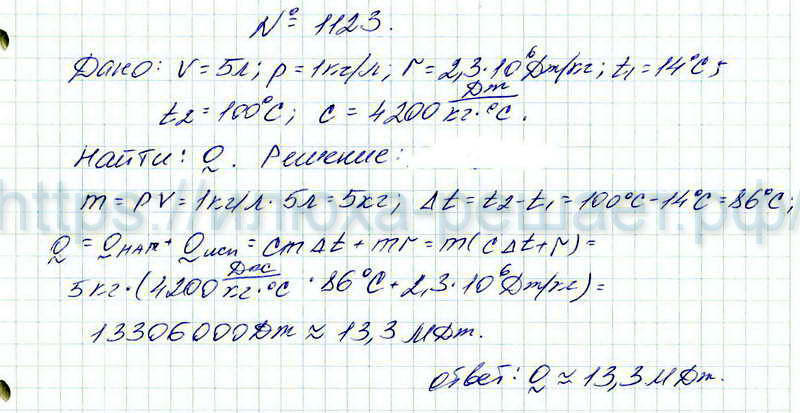 № 1123.
Дано: V = 5л; ρ = 1кг/л; r = 2,3·10⁶Дж/кг; t₁ = 14°C;
t₂ = 100°C; c = 4200 Дж/кг·°C.
Найти: Q. Решение:
m = ρV = 1кг/л · 5л = 5кг; Δt = t₂ - t₁ = 100°C - 14°C = 86°C;
https://илюха-решает.рф/
Q = Qнаг + Qисп = cmΔt + mr = m(cΔt + r) =
5кг·(4200 Дж/кг·°C · 86°C + 2,3·10⁶Дж/кг) =
13306000Дж ≈ 13,3 МДж.
ответ: Q ≈ 13,3 МДж.